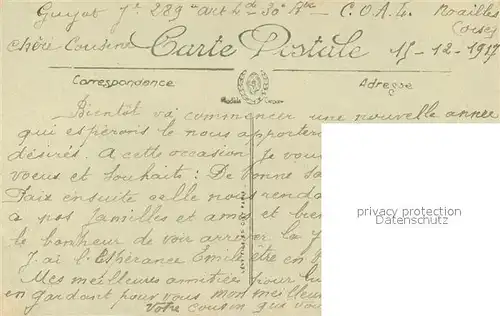 Guyot J. 289 art L de 30 C.O.A.L. Noailles
Corse
Chère Cousine
Carte Postale
17-12-1917
Correspondance
Adresse
Bientôt va commencer une nouvelle année
qui espérons le nous apportera
désirés. A cette occasion je vous
voeux et souhaits : De bonne
Paix ensuite celle nous rendra
à nos familles et amis et bien
le bonheur de voir arriver la
J'ai l'Espérance Emile être en
Mes meilleures amitiés pour lui
en gardant pour vous mon meilleur
Votre cousin que vous
privacy protection
www.oldthing.com